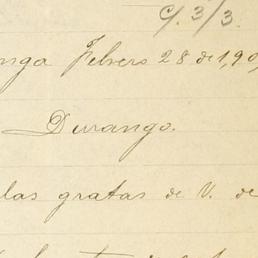 C/. 3/3.
nga Febrero 28 de 1,90
Durango.
las gratas de V. de